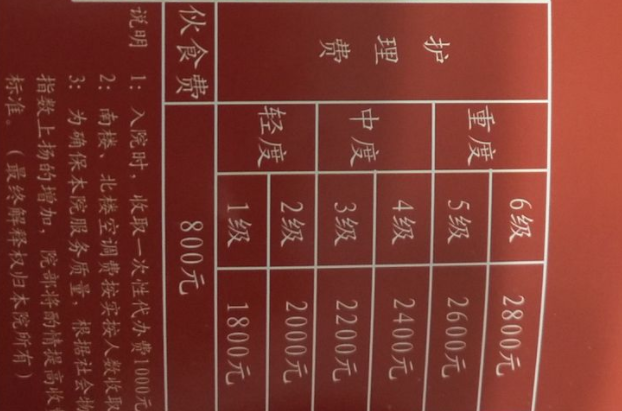 护理费
重度 6级 2800元
5级 2600元
中度 4级 2400元
3级 2200元
轻度 2级 2000元
1级 1800元
伙食费 800元
说明 1：入院时，收取一次性代办费1000元
2：南楼、北楼空调费按实按人数收取
3：为确保本院服务质量，根据社会物
指数上扬的增加，院部将酌情提高收
标准。（最终解释权归本院所有）